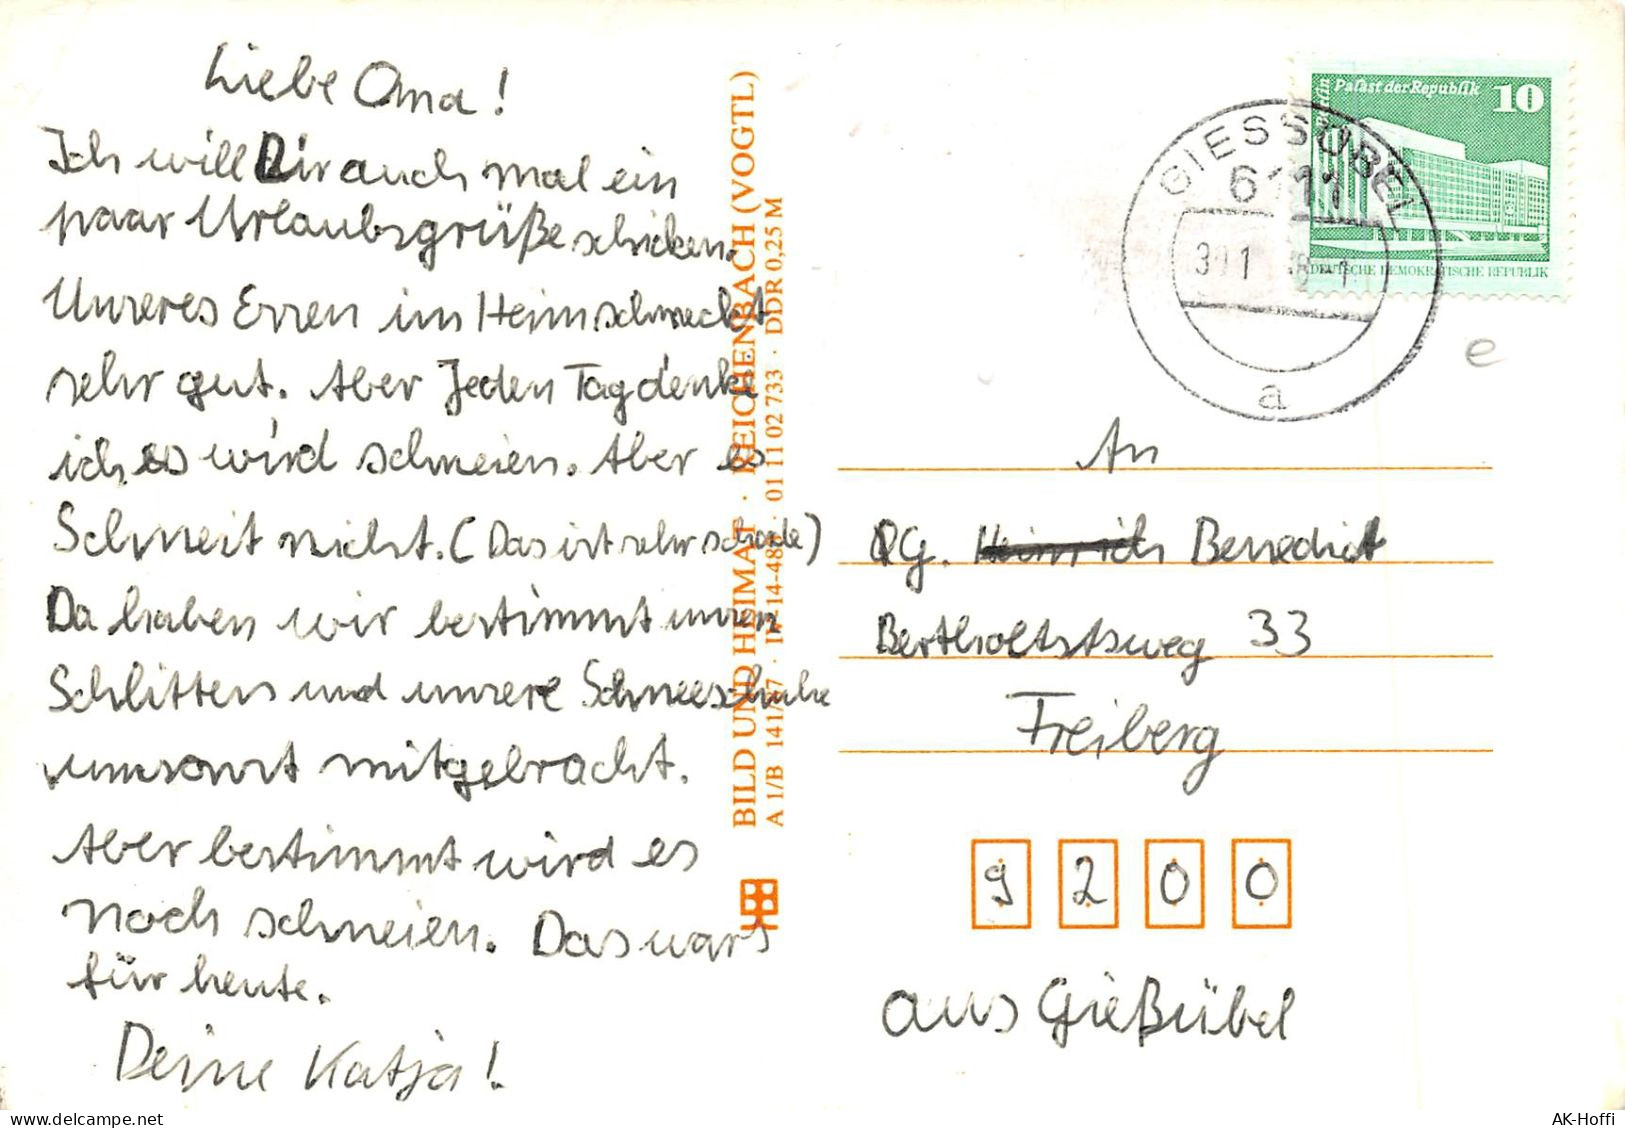 Liebe Oma!
Ich will Dir auch mal ein
paar Urlaubsgrüße schicken.
Unseres Essen im Heim schmeckt
sehr gut. Aber Jeden Tag denke
ich es wird schneien. Aber es
Schneit nicht. (Das ist sehr schade)
Da haben wir bestimmt unsren
Schlitten und unsere Schneeschuhe
umsonst mitgebracht.
Aber bestimmt wird es
noch schneien. Das wars
für heute.
Deine Katja!
BILD UND HEIMAT · REICHENBACH (VOGTL)
A 1/B 141/87 · IV-14-483 · 01 11 02 733 · DDR 0,25 M
Berlin Palast der Republik 10
DEUTSCHE DEMOKRATISCHE REPUBLIK
GIESSÜBEL
6111
a
e
An
G. Heinrich Benedict
Bertholtstsweg 33
Freiberg
9200
aus Gießübel
www.delcampe.net
AK-Hoffi